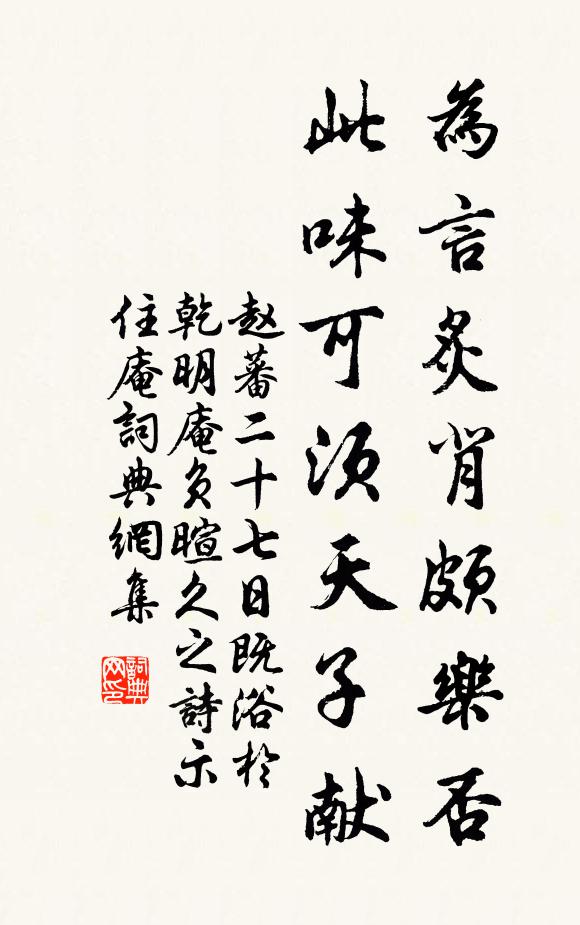 為言炙背頗樂否
此味可須天子献
赵蕃二十七日既浴於
乾明庵负暄久之詩示
住庵詞典網集
詞典网印